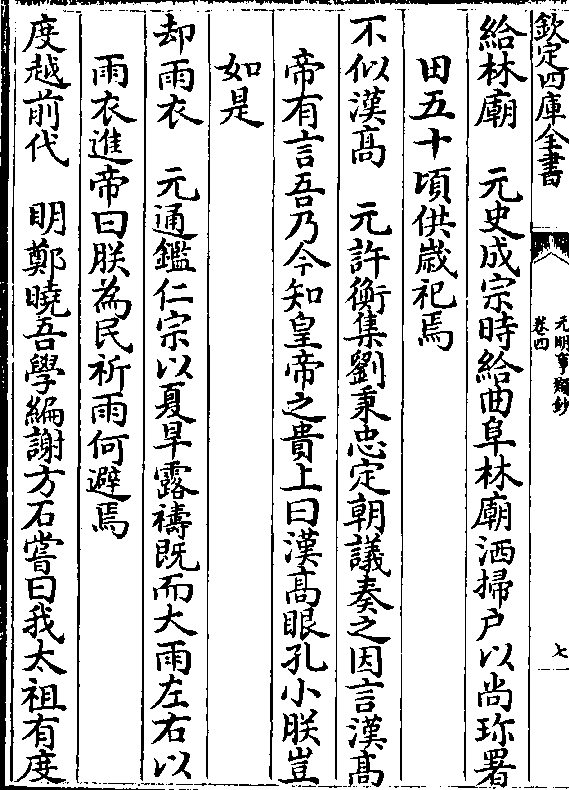 欽定四庫全書
元明事類鈔
卷四
七
給林廟　元史成宗時給曲阜林廟洒掃户以尚珎署
田五十頃供歲祀焉
不似漢髙　元許衡集劉秉忠定朝議奏之因言漢髙
帝有言吾乃今知皇帝之貴上曰漢髙眼孔小朕豈
如是
却雨衣　元通鑑仁宗以夏旱露禱既而大雨左右以
雨衣進帝曰朕為民祈雨何避焉
度越前代　明鄭曉吾學編謝方石嘗曰我太祖有度